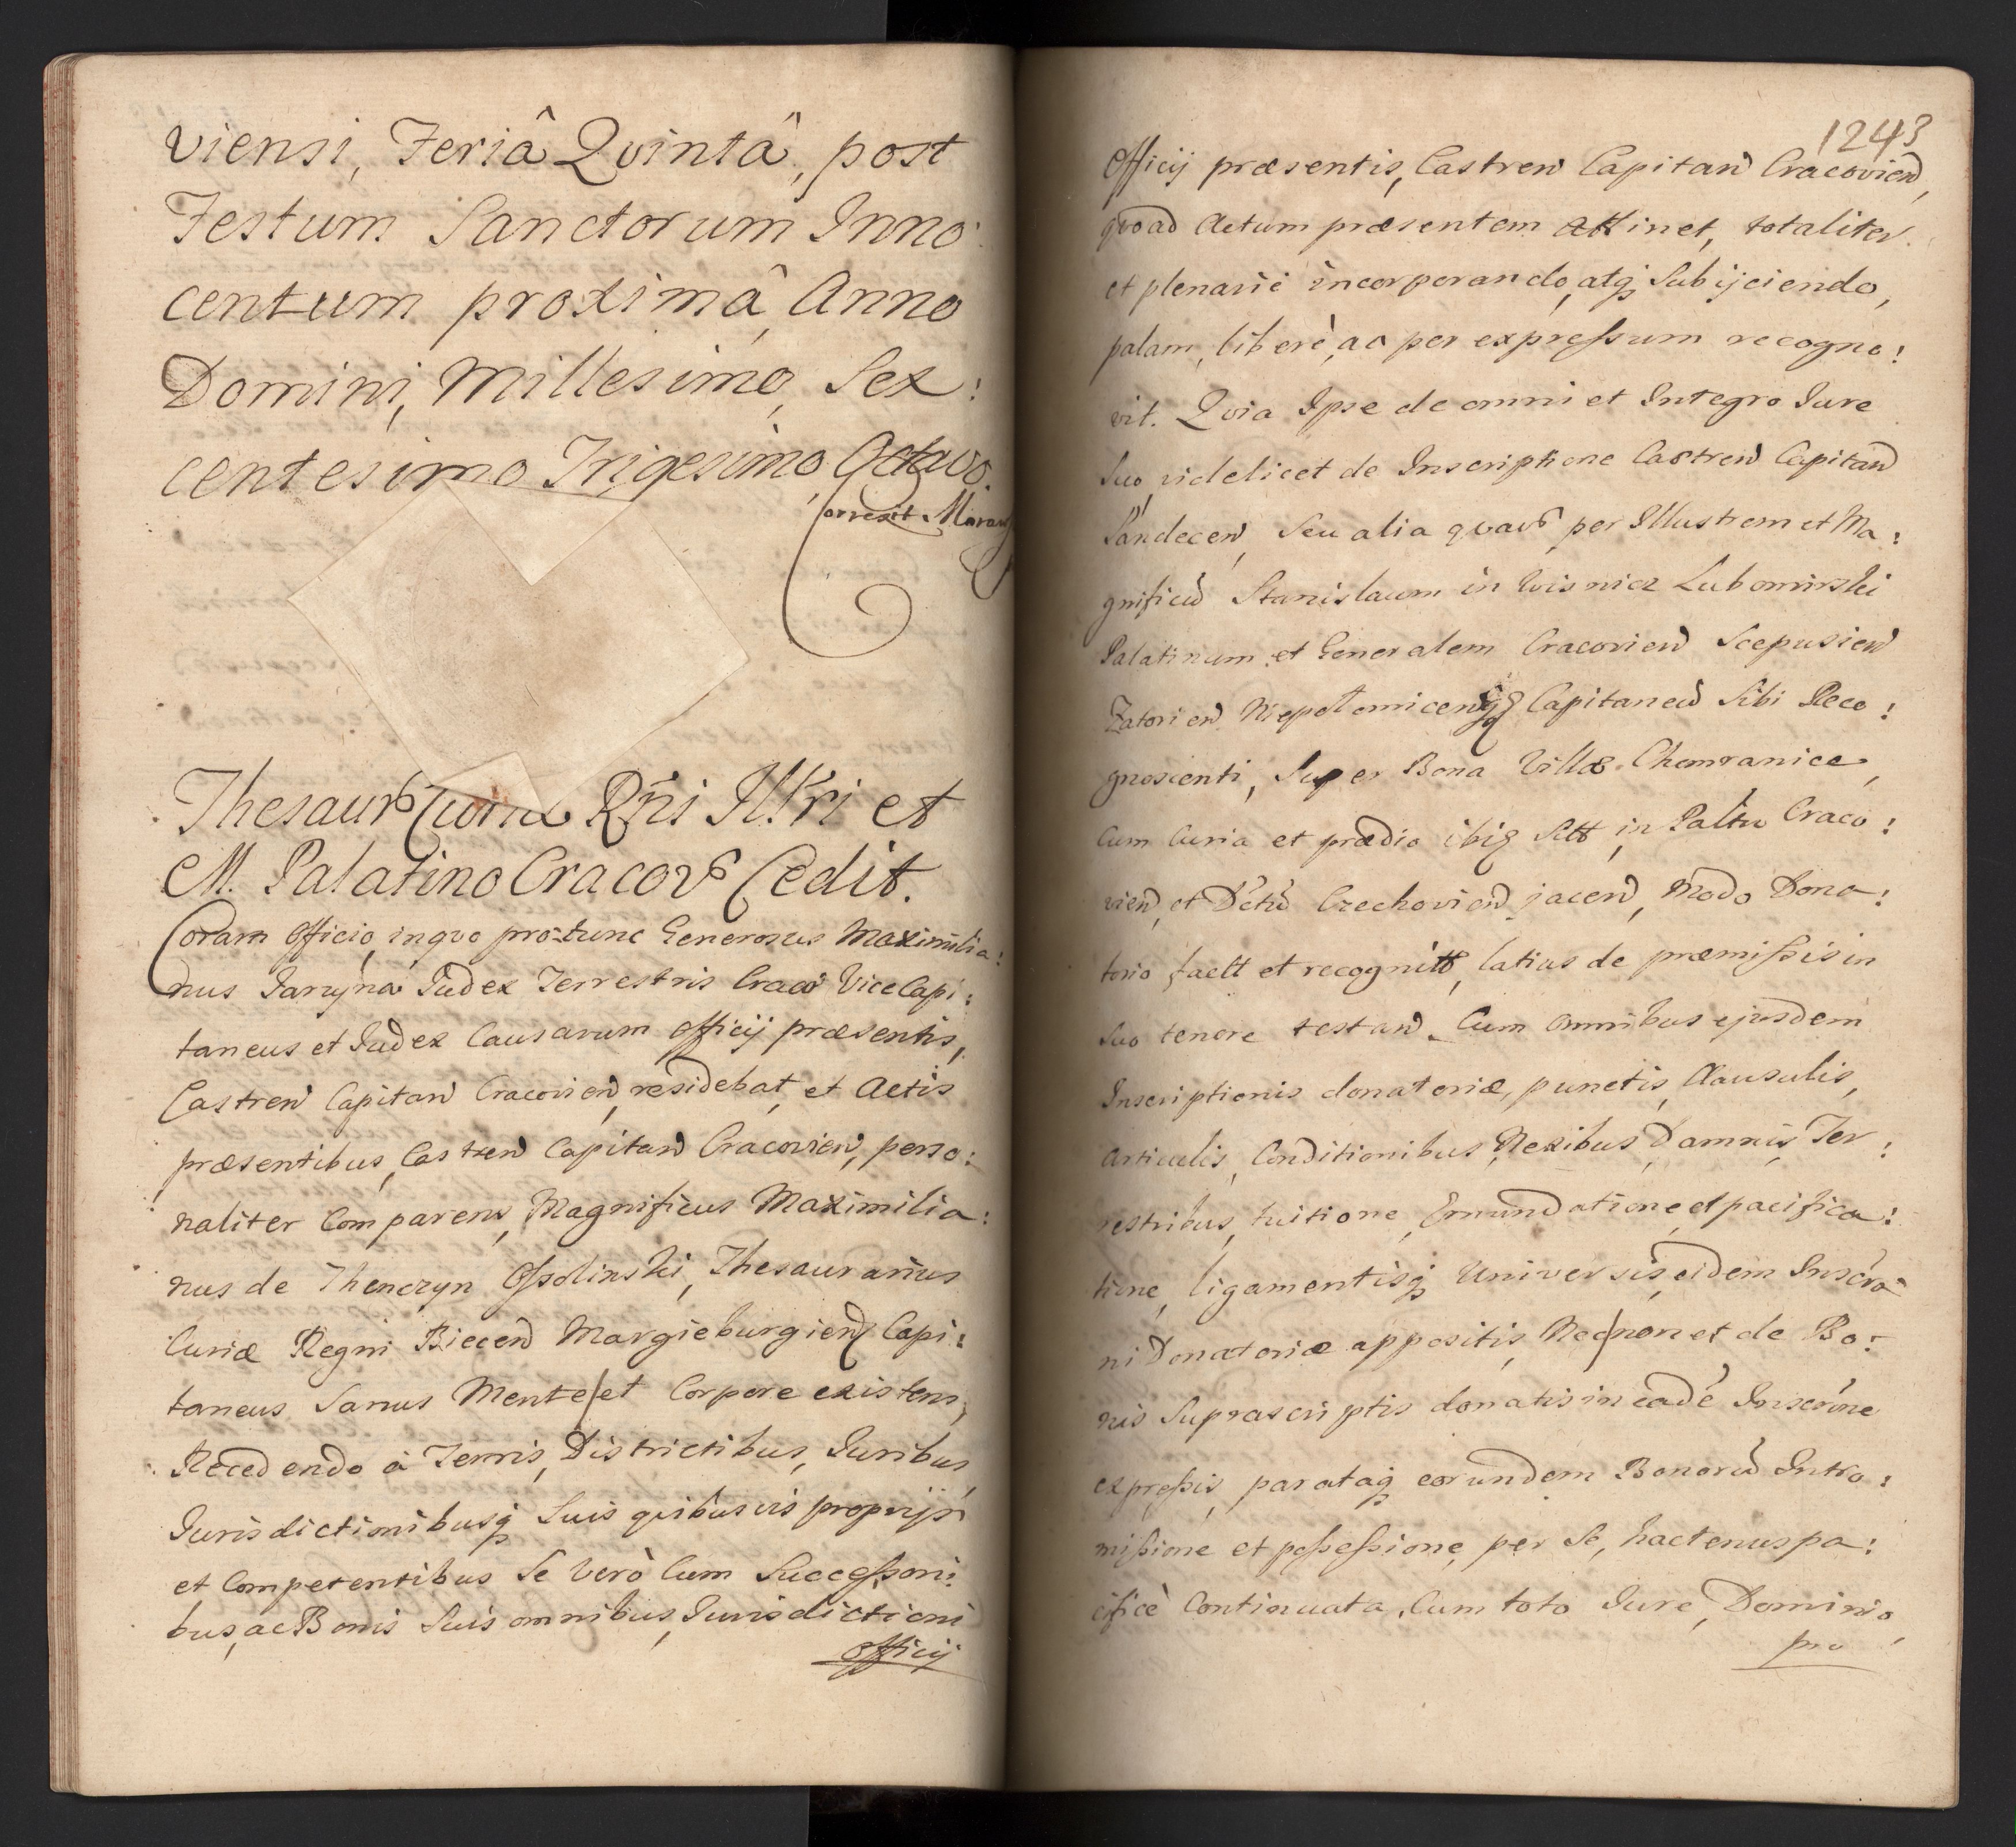 viensi, Feriâ Qvintâ, post
Festum Sanctorum Inno:
centum proximâ Anno
Domini, Millesimo, Sex:
centesimo Trigesimo, Octavo.
Correxit
Thesaur Curiæ Rñi Illri et
M. Palatino Cracov Cedit.
Coram Officio, inqvo pro tunc Generosus Maximilia:
nus Jaruÿna Judex Terrestris Craco ViceCapi:
taneus et Judex Causarum officij præsentis,
Castren Capitan Cracovien, residebat, et Actis
præsentibus, Castren Capitan Cracovien, perso:
naliter Comparens, Magnificus Maximilia:
nus de Thenczyn Ossolinski, Thesaurarius
Curiæ Regni Biecen Margieburgien Capi:
taneus Sanus Mente et Corpore existens,
Recedendo à Terris, Districtibus, Juribus,
Jurisdictionibusq Suis qvibusvis proprijs
et Competentibus Se verò Cum Successori:
bus, ac Bonis Suis omnibus, Jurisdictioni
officij
1243
Officij præsentis, Castren Capitan Cracovien,
qvoad Actum præsentem attinet, totaliter
et plenariè incorporando, atq Subijciendo,
palam, liberè, ac per expressum recogno:
vit. Qvia Ipse de omni et Integro Jure
Suo, videlicet de Inscriptione Castren Capitan
Sandecen, Seu alia qvavs per Illustrem et Ma:
gnificu Stanislaum in Wisnicz Lubomirski
Palatinum et Generalem Cracovien Scepusien
Zatorien Niepolomicenq Capitaneu Sibi Reco:
gnoscenti, Super Bona Villæ Chomranice,
Cum Curia et prædio ibiq Sitt, in Paltu Craco:
vien, et Dctu Czechovien jacen, Modo Dona:
torio factt et recognitt, latius de præmissis in
Suo tenore testan. Cum Omnibus ejusdem
Inscriptionis donatoriæ, punctis, Clausulis,
Articulis, Conditionibus, Nexibus, Damnis, Ter:
restribus, tuitione, Emundatione, et pacifica:
tione, ligamentisq Universis, eidem Inscrò:
ni Donatoriæ appositis, Necnon et de Bo:
nis Suprascriptis donatis in eadē Inscrine
expressis, parataq eorundem Bonoru Intro:
missione et possessione, per Se, hactenus pa:
cificè Continuata, Cum toto Jure, Dominio,
pro